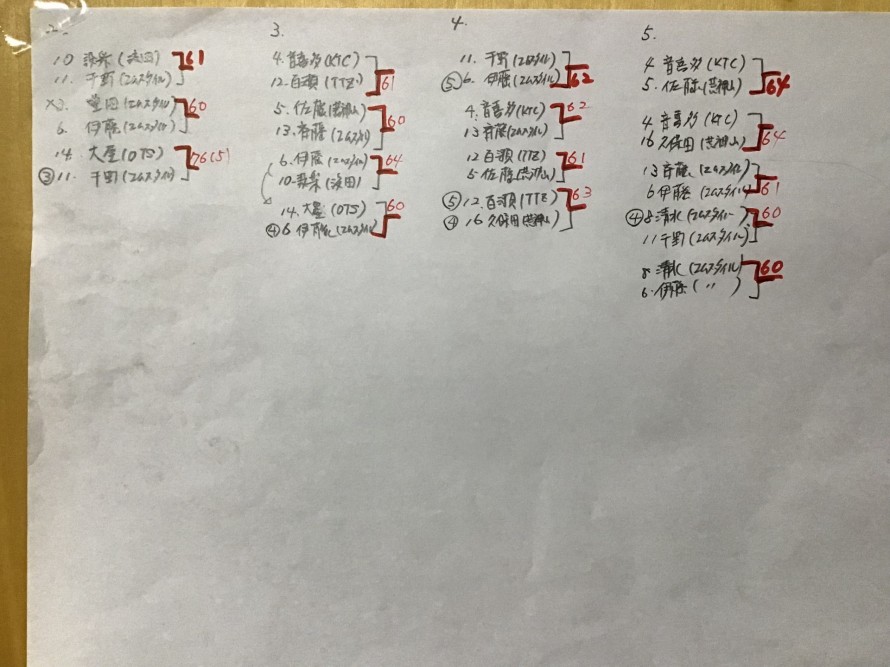 2.
10 (浜田) 61
11. 千野 (エムスタイル)
×3. (エムスタイル) 60
6. 伊藤 (エムスタイル)
14. 大屋 (OTS) 76(5)
③ 11. 千野 (エムスタイル)
3.
4. 音喜多 (KTC)
12. 百瀬 (TTE) 61
5. 佐藤 (荒神山)
13. 斉藤 (エムスタイル) 60
6. 伊藤 (エムスタイル) 64
10. (浜田)
14. 大屋 (OTS) 60
④ 6 伊藤 (エムスタイル)
4.
11. 千野 (エムスタイル)
⑤ 6. 伊藤 (エムスタイル) 62
4. 音喜多 (KTC) 62
13 斉藤 (エムスタイル)
12 百瀬 (TTE) 61
5. 佐藤 (荒神山)
⑤ 12. 百瀬 (TTE) 63
④ 16. 久保田 (荒神山)
5.
4 音喜多 (KTC)
5. 佐藤 (荒神山) 64
4 音喜多 (KTC)
16 久保田 (荒神山) 64
13 斉藤 (エムスタイル)
6 伊藤 (エムスタイル) 61
④ 8 清水 (エムスタイル) 60
11 千野 (エムスタイル)
8. 清水 (エムスタイル) 60
6. 伊藤 ( 〃 )